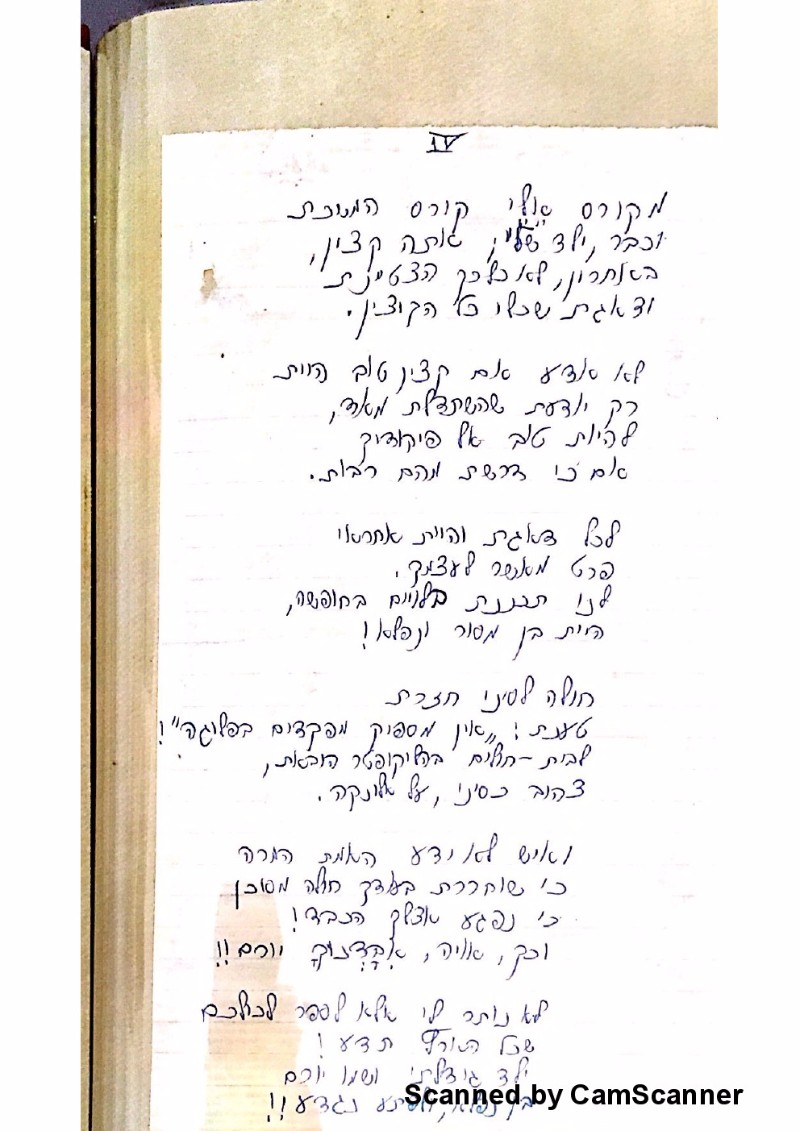 IV
מקורס אולי קורס המנוכת
וכבר, ילד שלי, אותה קצין,
באחרון, לא כל כך הצטיינת
ודאגת שכשלו כל הקוצין.
לא אדע אם קצין טוב היית
רק יודעת שהשתדלת מאד,
להיות טוב אל פיקודיך
אם כי דרשת מהם רבות.
לכל דאגת והיית אחראי
פרט מאשר לעצמך.
לנו תכננת בלויים בחופשה,
היית בן מסור ונפלא!
חולה לסיני חזרת
טענת: "אין מספיק מפקדים בפלוגה"!
לבית-חולים בהליקופטר הובאת,
צהוב כסיני, על אלונקה.
ואיש לא ידע האמת המרה
כי שוחררת בעודך חולה מסוכן
כי נפגע אצלך הכבד!
וכך, אויה, אִבַּדְנוּךָ יורם!!
לא נותר לי אלא לספר לכולכם
שכל התורה תדע!
ילד גידלתי ושמו יורם
בן נפלא, לפתע נגדע!!
Scanned by CamScanner